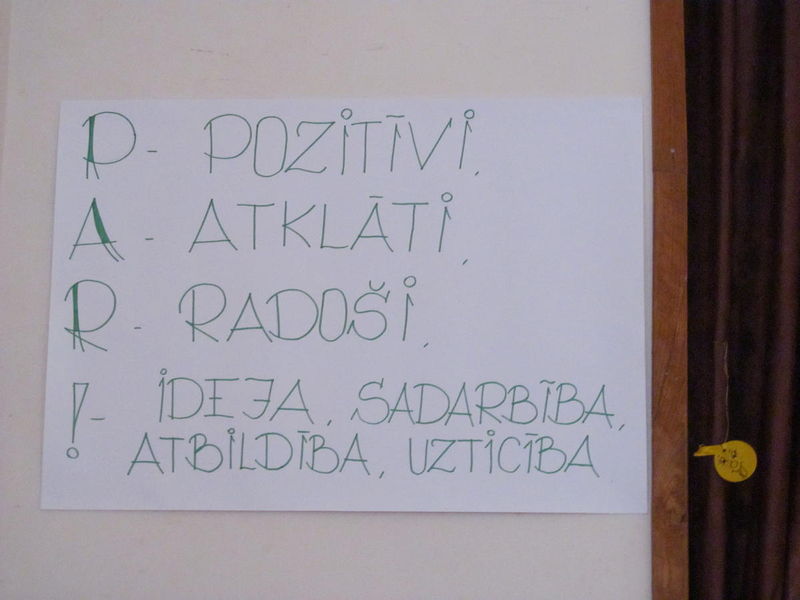 P - POZITĪVI,
A - ATKLĀTI,
R - RADOŠI,
! - IDEJA, SADARBĪBA,
ATBILDĪBA, UZTICĪBA